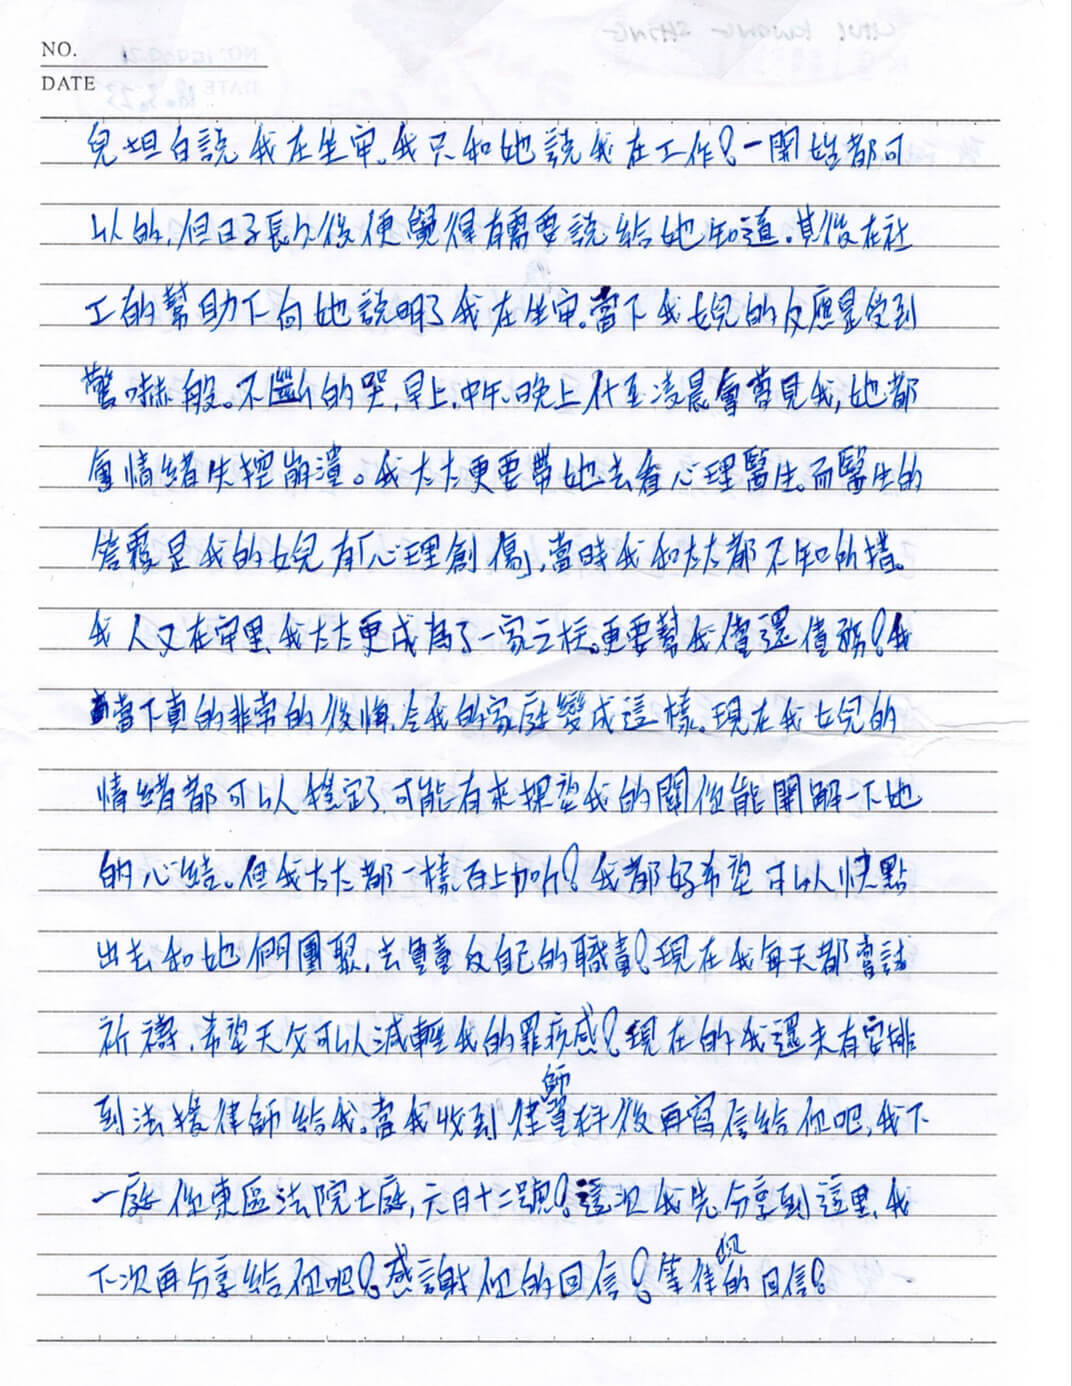 NO.
DATE
兒坦白說我在坐牢。我只和她說我在工作！一開始都可
以的，但日子長久後便覺得有需要說給她知道。其後在社
工的幫助下向她說明了我在坐牢。當下我女兒的反應是受到
驚嚇般。不斷的哭，早上，中午，晚上什至凌晨會尋見我，她都
會情緒失控崩潰。我太太更要帶她去看心理醫生。而醫生的
答覆是我的女兒有「心理創傷」，當時我和太太都不知所措。
我人又在牢里，我太太更成為了一家之柱。更要幫我償還債務！我
當下真的非常的後悔，令我的家庭變成這樣。現在我女兒的
情緒都可以穩定了，可能有來探望我的關係能開解一下她
的心結。但我太太都一樣百上加斤！我都好希望可以快點
出去和她們團聚，去盡責反自己的職責！現在我每天都嘗試
祈禱，希望天父可以減輕我的罪疚感！現在的我還未有安排
到法援律師給我。當我收到律師資料後再寫信給你吧，我下
一庭係東區法院七庭，六月十二號！這次我先分享到這里，我
下次再分享給你吧！感謝你的回信！等待你的回信！